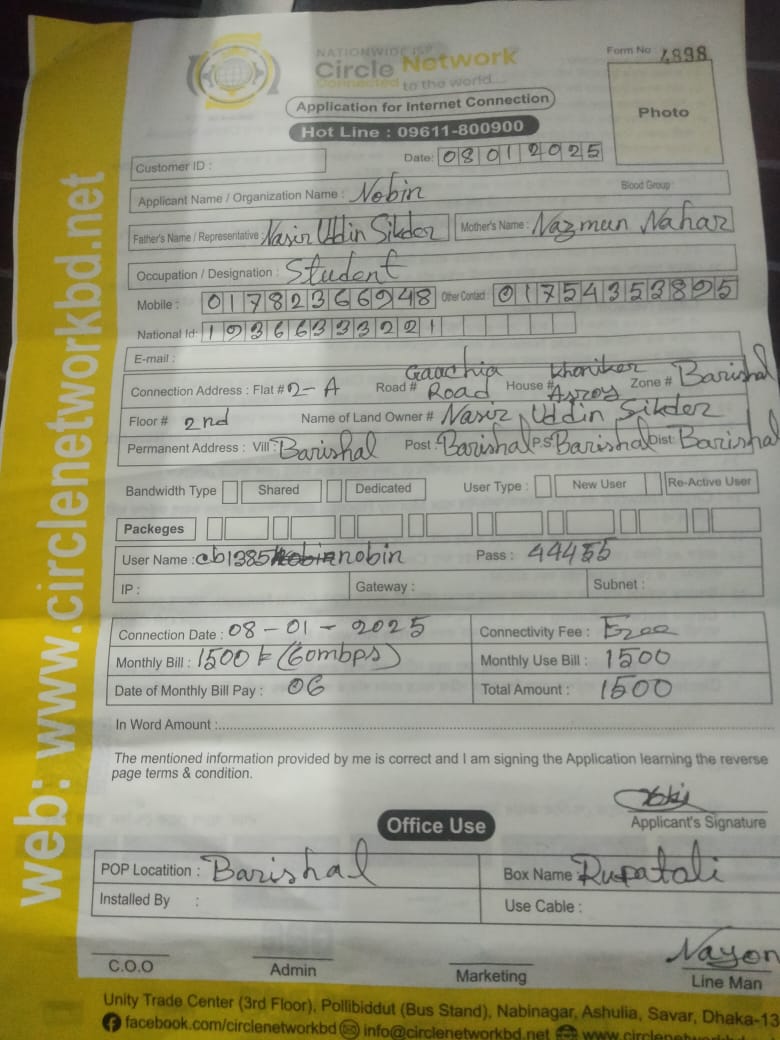 NATIONWIDE ISP
Circle Network
Connected to the world...
Form No : 4898
Application for Internet Connection
Photo
Hot Line : 09611-800900
Customer ID :
Date: 08012025
Applicant Name / Organization Name : Nobin Blood Group :
Father's Name / Representative : Nasir Uddin Sikder Mother's Name : Nazmun Nahar
Occupation / Designation : Student
Mobile : 01782366948 Other Contact : 01754353895
National Id: 1936633321
E-mail :
Connection Address : Flat # 2-A Road # Gaachia Road House # Khoniker Asroy Zone # Barishal
Floor # 2nd Name of Land Owner # Nasir Uddin Sikder
Permanent Address : Vill : Barishal Post : Barishal P.S Barishal Dist: Barishal
Bandwidth Type Shared Dedicated User Type : New User Re-Active User
Packeges
User Name : cb1385nobin Pass : 44455
IP : Gateway : Subnet :
Connection Date : 08-01-2025 Connectivity Fee :
Monthly Bill : 1500 (60mbps) Monthly Use Bill : 1500
Date of Monthly Bill Pay : 06 Total Amount : 1500
In Word Amount :
The mentioned information provided by me is correct and I am signing the Application learning the reverse
page terms & condition.
Applicant's Signature
Office Use
POP Locatition : Barishal Box Name : Rupatali
Installed By : Use Cable :
Nayon
C.O.O Admin Marketing Line Man
Unity Trade Center (3rd Floor), Pollibiddut (Bus Stand), Nabinagar, Ashulia, Savar, Dhaka-13
facebook.com/circlenetworkbd info@circlenetworkbd.net www.circlenetworkbd
web: www.circlenetworkbd.net